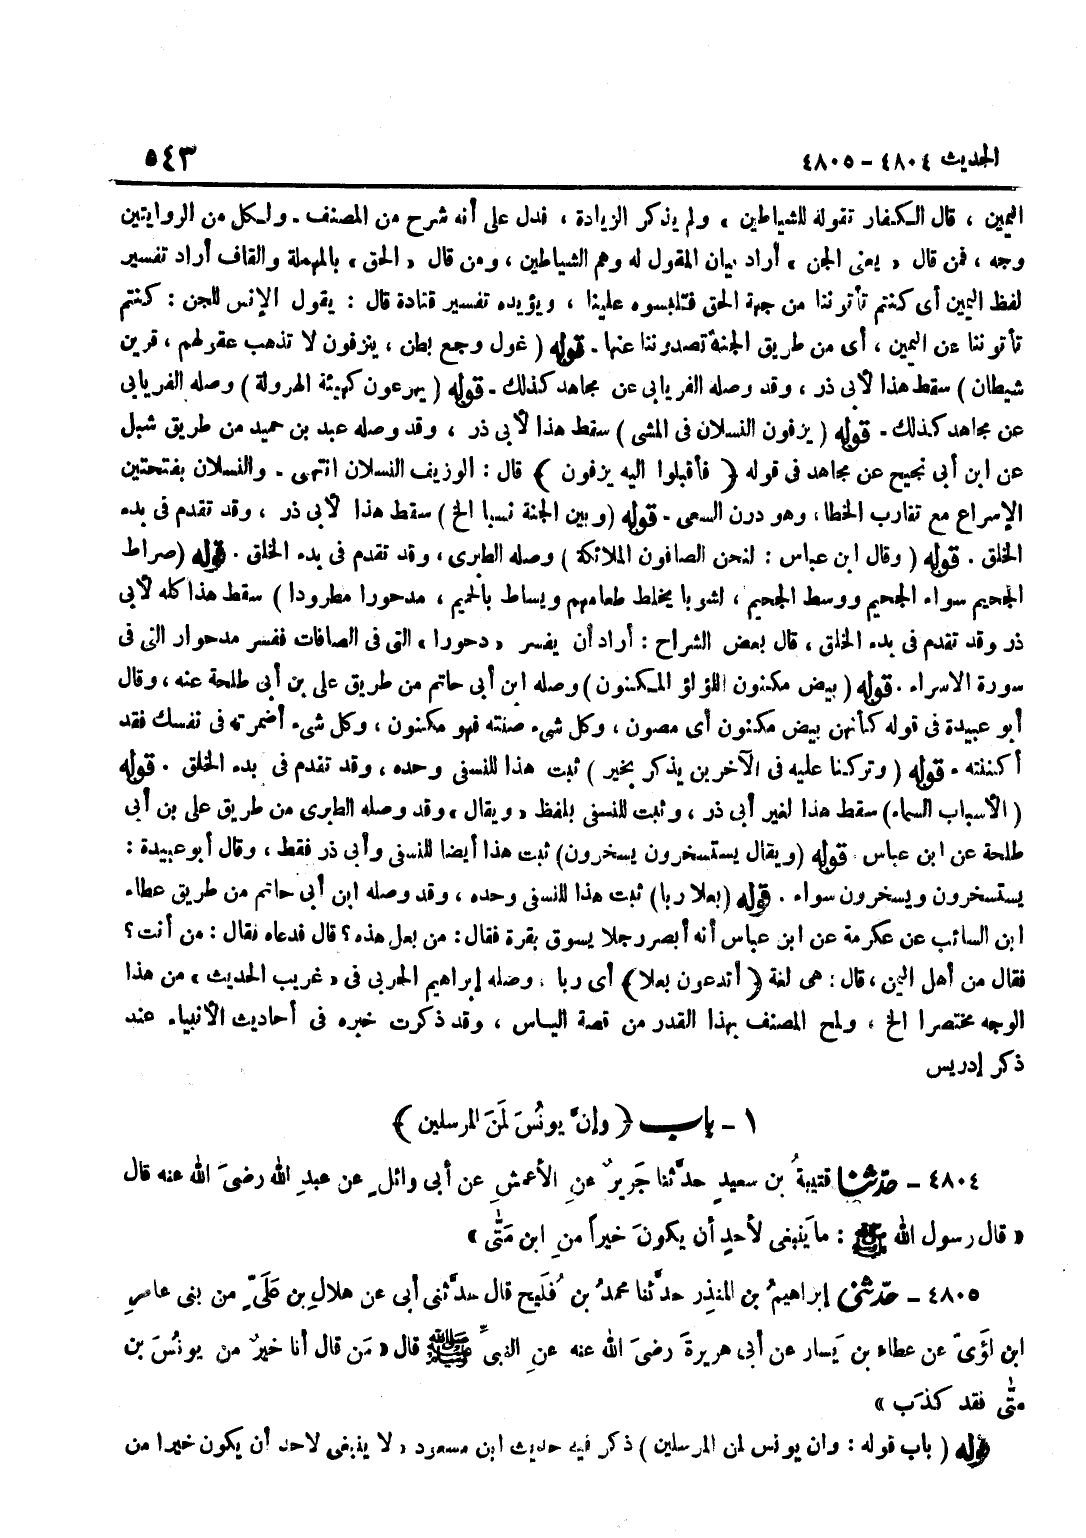 الحديث ٤٨٠٤ - ٤٨٠٥ ٥٤٣
اليمين ، قال الكفار تقوله للشياطين ، ولم يذكر الزيادة ، فدل على أنه شرح من المصنف . ولكل من الروايتين
وجه ، فمن قال « يعني الجن » أراد بيان المقول له وهم الشياطين ، ومن قال « الحق » بالمهملة والقاف أراد تفسير
لفظ اليمين أى كنتم تأتوننا من جهة الحق فتلبسوه علينا ، ويؤيده تفسير قتادة قال : يقول الإنس للجن : كنتم
تأتوننا عن اليمين ، أى من طريق الجنة تصدوننا عنها . قوله ( غول وجع بطن ، ينزفون لا تذهب عقولهم ، قرين
شيطان ) سقط هذا لأبى ذر ، وقد وصله الفريابى عن مجاهد كذلك . قوله ( يهرعون كهيئة الهرولة ) وصله الفريابى
عن مجاهد كذلك . قوله ( يزفون النسلان فى المشى ) سقط هذا لأبى ذر ، وقد وصله عبد بن حميد من طريق شبل
عن ابن أبى نجيح عن مجاهد فى قوله ﴿ فأقبلوا اليه يزفون ﴾ قال : الوزيف النسلان انتهى . والنسلان بفتحتين
الإسراع مع تقارب الخطا ، وهو درن السعى . قوله ( وبين الجنة نسبا الخ ) سقط هذا لأبى ذر ، وقد تقدم فى بدء
الخلق . قوله ( وقال ابن عباس : لنحن الصافون الملائكة ) وصله الطبرى ، وقد تقدم فى بدء الخلق . قوله ( صراط
الجحيم سواء الجحيم ووسط الجحيم ، لشوبا يخلط طعامهم ويساط بالحميم ، مدحورا مطرودا ) سقط هذا كله لأبى
ذر وقد تقدم فى بدء الخلق ، قال بعض الشراح : أراد أن يفسر « دحورا » التى فى الصافات ففسر مدحورا التى فى
سورة الاسراء . قوله ( بيض مكنون اللؤلؤ المكنون ) وصله ابن أبى حاتم من طريق على بن أبى طلحة عنه ، وقال
أبو عبيدة فى قوله كأنهن بيض مكنون أى مصون ، وكل شىء صنته فهو مكنون ، وكل شىء أضمرته فى نفسك فقد
أكننته . قوله ( وتركنا عليه فى الآخرين يذكر بخير ) ثبت هذا للنسفى وحده ، وقد تقدم فى بدء الخلق . قوله
( الأسباب السماء ) سقط هذا لغير أبى ذر ، وثبت للنسفى بلفظ « ويقال » وقد وصله الطبرى من طريق على بن أبى
طلحة عن ابن عباس . قوله ( ويقال يستسخرون يسخرون ) ثبت هذا أيضا للنسفى وأبى ذر فقط ، وقال أبو عبيدة :
يستسخرون ويسخرون سواء . قوله ( بعلا ربا ) ثبت هذا للنسفى وحده ، وقد وصله ابن أبى حاتم من طريق عطاء
ابن السائب عن عكرمة عن ابن عباس أنه أبصر رجلا يسوق بقرة فقال : من بعل هذه ؟ قال فدعاه فقال : من أنت ؟
فقال من أهل اليمن ، قال : هى لغة ﴿ أتدعون بعلا ﴾ أى ربا . وصله إبراهيم الحربى فى « غريب الحديث » من هذا
الوجه مختصرا الخ ، ولمح المصنف بهذا القدر من قصة الياس ، وقد ذكرت خبره فى أحاديث الأنبياء عند
ذكر إدريس
١ - باب ﴿ وإنّ يونُسَ لمَنَ المرسلين ﴾
٤٨٠٤ - حدثنا قتيبةُ بن سعيدٍ حدَّثنا جَريرٌ عنِ الأعمشِ عن أبى وائلٍ عن عبدِ الله رضىَ الله عنه قال
« قال رسول الله ﷺ : ما يَنبغى لأحدٍ أن يكونَ خيراً منِ ابن مَتَّى »
٤٨٠٥ - حدثنى إبراهيمُ بن المنذِر حدَّثنا محمدُ بن فُلَيح قال حدَّثنى أبى عن هلالِ بن عَلَىٍّ من بنى عامرِ
ابن لؤَىّ عن عطاء بن يَسار عن أبى هريرةَ رضىَ الله عنه عنِ النبىِّ ﷺ قال « مَن قال أنا خيرٌ من يونُسَ بن
متَّى فقد كذَب »
قوله ( باب قوله : وان يونس لمن المرسلين ) ذكر فيه حديث ابن مسعود « لا ينبغى لاحد أن يكون خيرا من